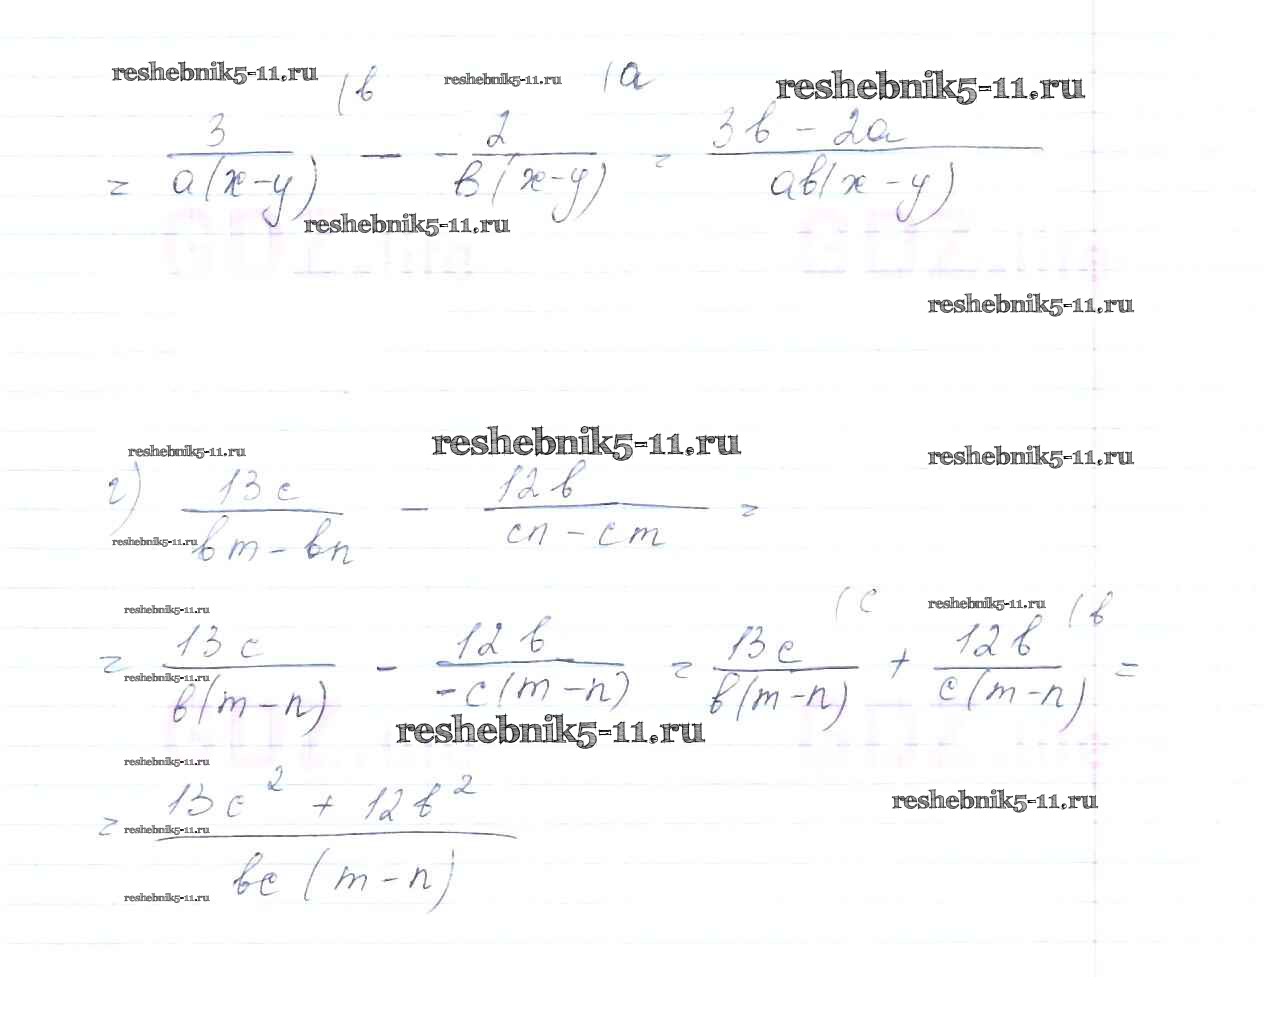 reshebnik5-11.ru (b reshebnik5-11.ru (a reshebnik5-11.ru
= 3/(a(x-y)) - -2/(b(x-y)) = (3b - 2a)/(ab(x-y))
reshebnik5-11.ru
reshebnik5-11.ru
reshebnik5-11.ru reshebnik5-11.ru reshebnik5-11.ru
г) 13c/(bm - bn) - 12b/(cn - cm) =
reshebnik5-11.ru
reshebnik5-11.ru (c reshebnik5-11.ru (b
= 13c/(b(m-n)) - 12b/(-c(m-n)) = 13c/(b(m-n)) + 12b/(c(m-n)) =
reshebnik5-11.ru
reshebnik5-11.ru
reshebnik5-11.ru
= (13c² + 12b²)/(bc(m-n))
reshebnik5-11.ru
reshebnik5-11.ru
reshebnik5-11.ru